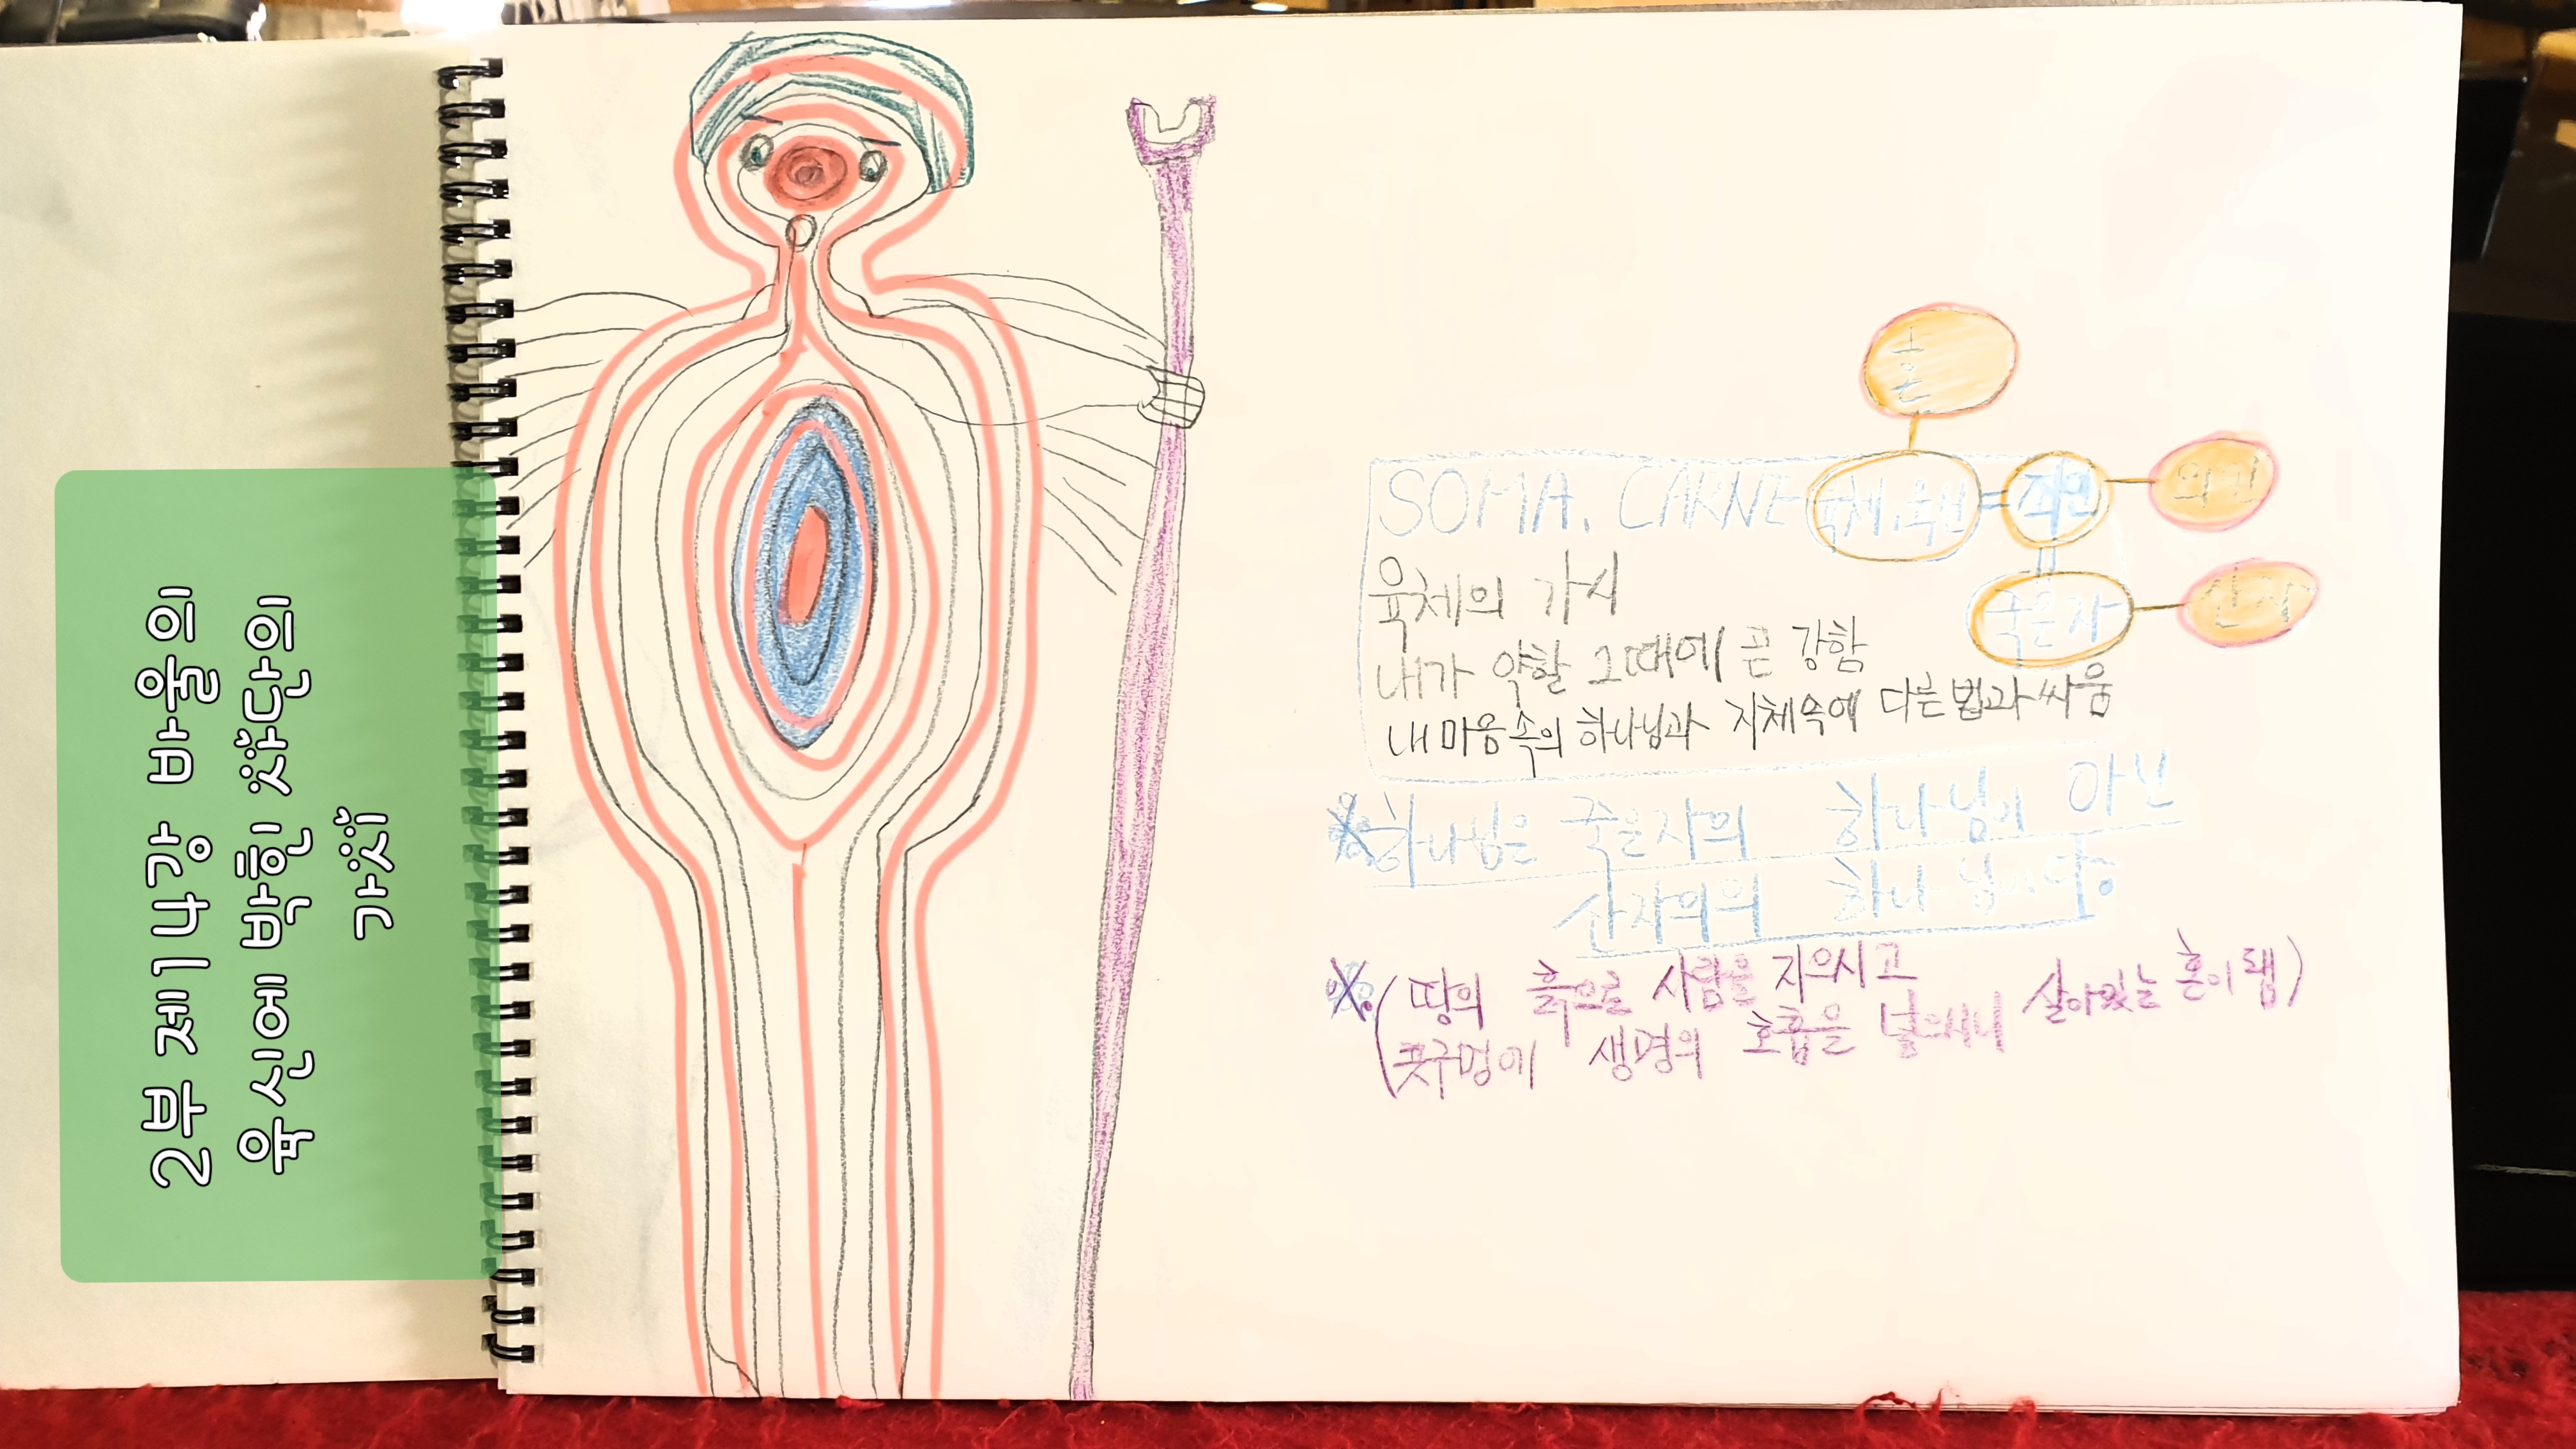 2부 제14강 바울의
육신에 박힌 싸단의
가씨
혼
SOMA. CARNE 육체.육신 = 죄인 의인
육체의 가시
죽은자 산자
내가 약할 그때에 곧 강함
내 마음속의 하나님과 지체속에 다른 법과 싸움
※하나님은 죽은자의 하나님이 아닌
산자의의 하나님이다.
※.(땅의 흙으로 사람을 지으시고
콧구멍에 생명의 호흡을 불으시니 살아있는 혼이 됌)